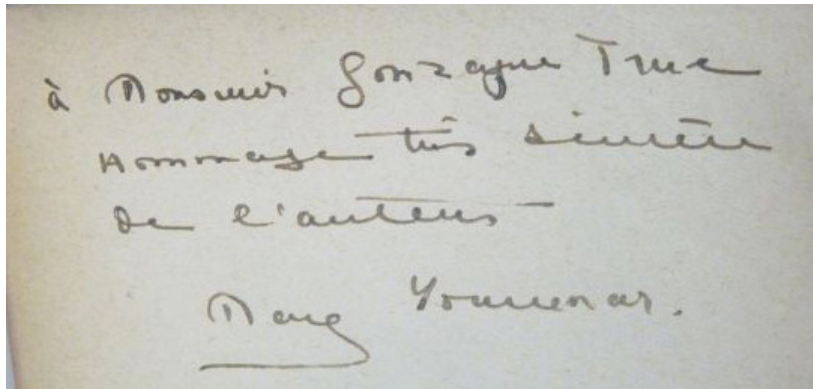 à Monsieur Gonzague Truc
Hommage très sincère
de l'auteur
Marg Yourcenar.